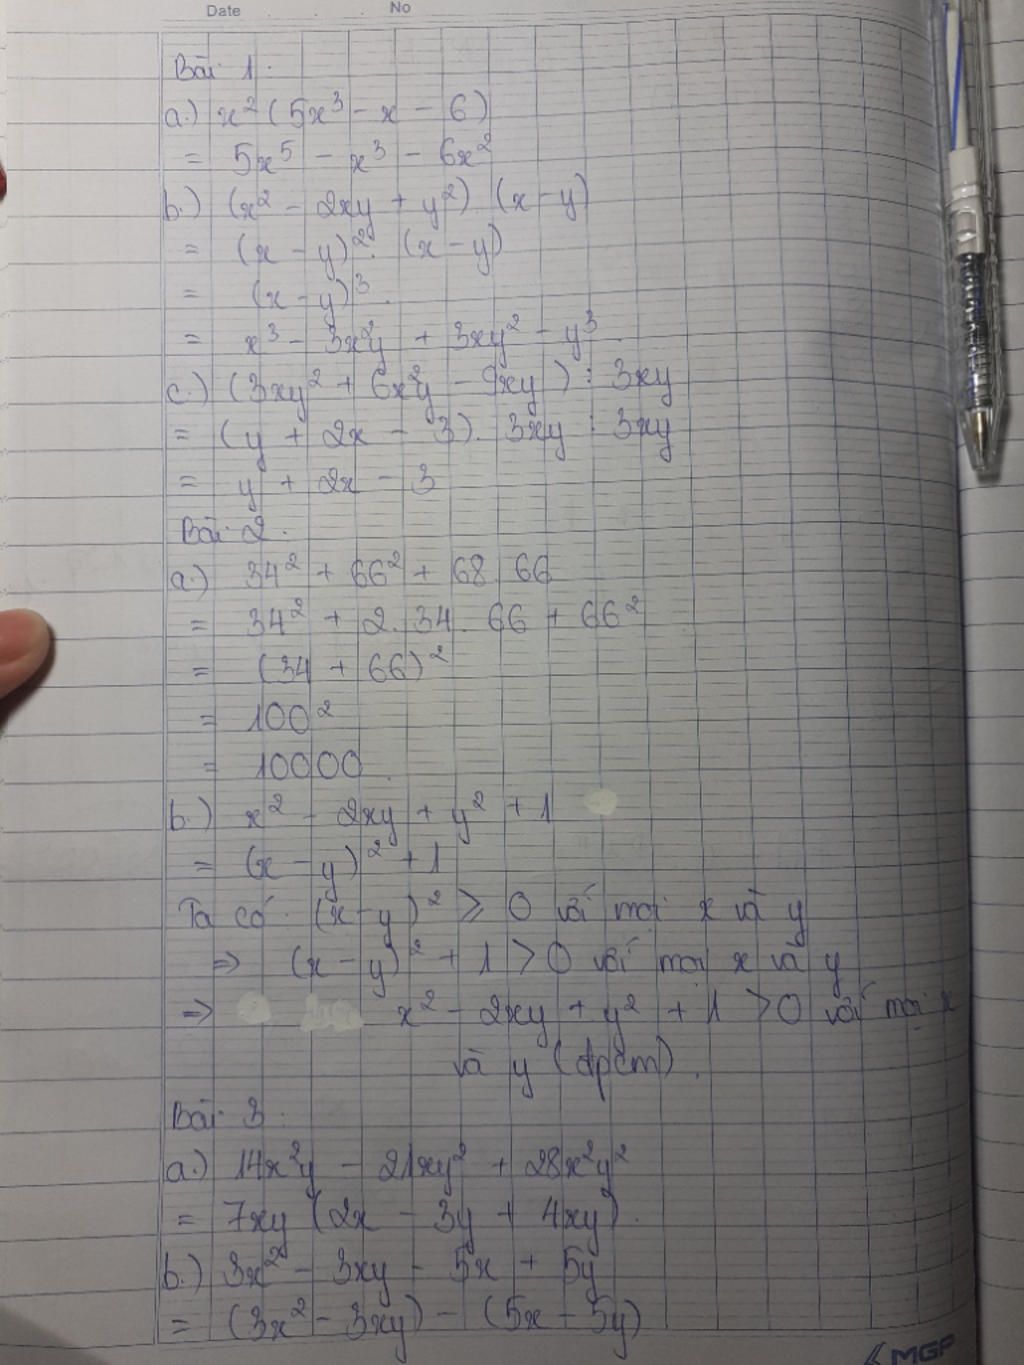 Date No
Bài 1:
a.) x² (5x³ - x - 6)
= 5x⁵ - x³ - 6x²
b.) (x² - 2xy + y²) (x - y)
= (x - y)² . (x - y)
= (x - y)³.
= x³ - 3x²y + 3xy² - y³.
c.) (3xy² + 6x²y - 9xy) : 3xy
= (y + 2x - 3). 3xy : 3xy
= y + 2x - 3
Bài 2:
a.) 34² + 66² + 68 66
= 34² + 2. 34. 66 + 66²
= (34 + 66)²
= 100²
= 10000.
b.) x² - 2xy + y² + 1
= (x - y)² + 1
Ta có: (x - y)² ≥ 0 với mọi x và y
⇒ (x - y)² + 1 > 0 với mọi x và y
⇒ x² - 2xy + y² + 1 > 0 với mọi x
và y (đpcm).
Bài 3:
a.) 14x²y - 21xy² + 28x²y²
= 7xy (2x - 3y + 4xy).
b.) 3x² - 3xy - 5x + 5y
= (3x² - 3xy) - (5x - 5y)
MGP